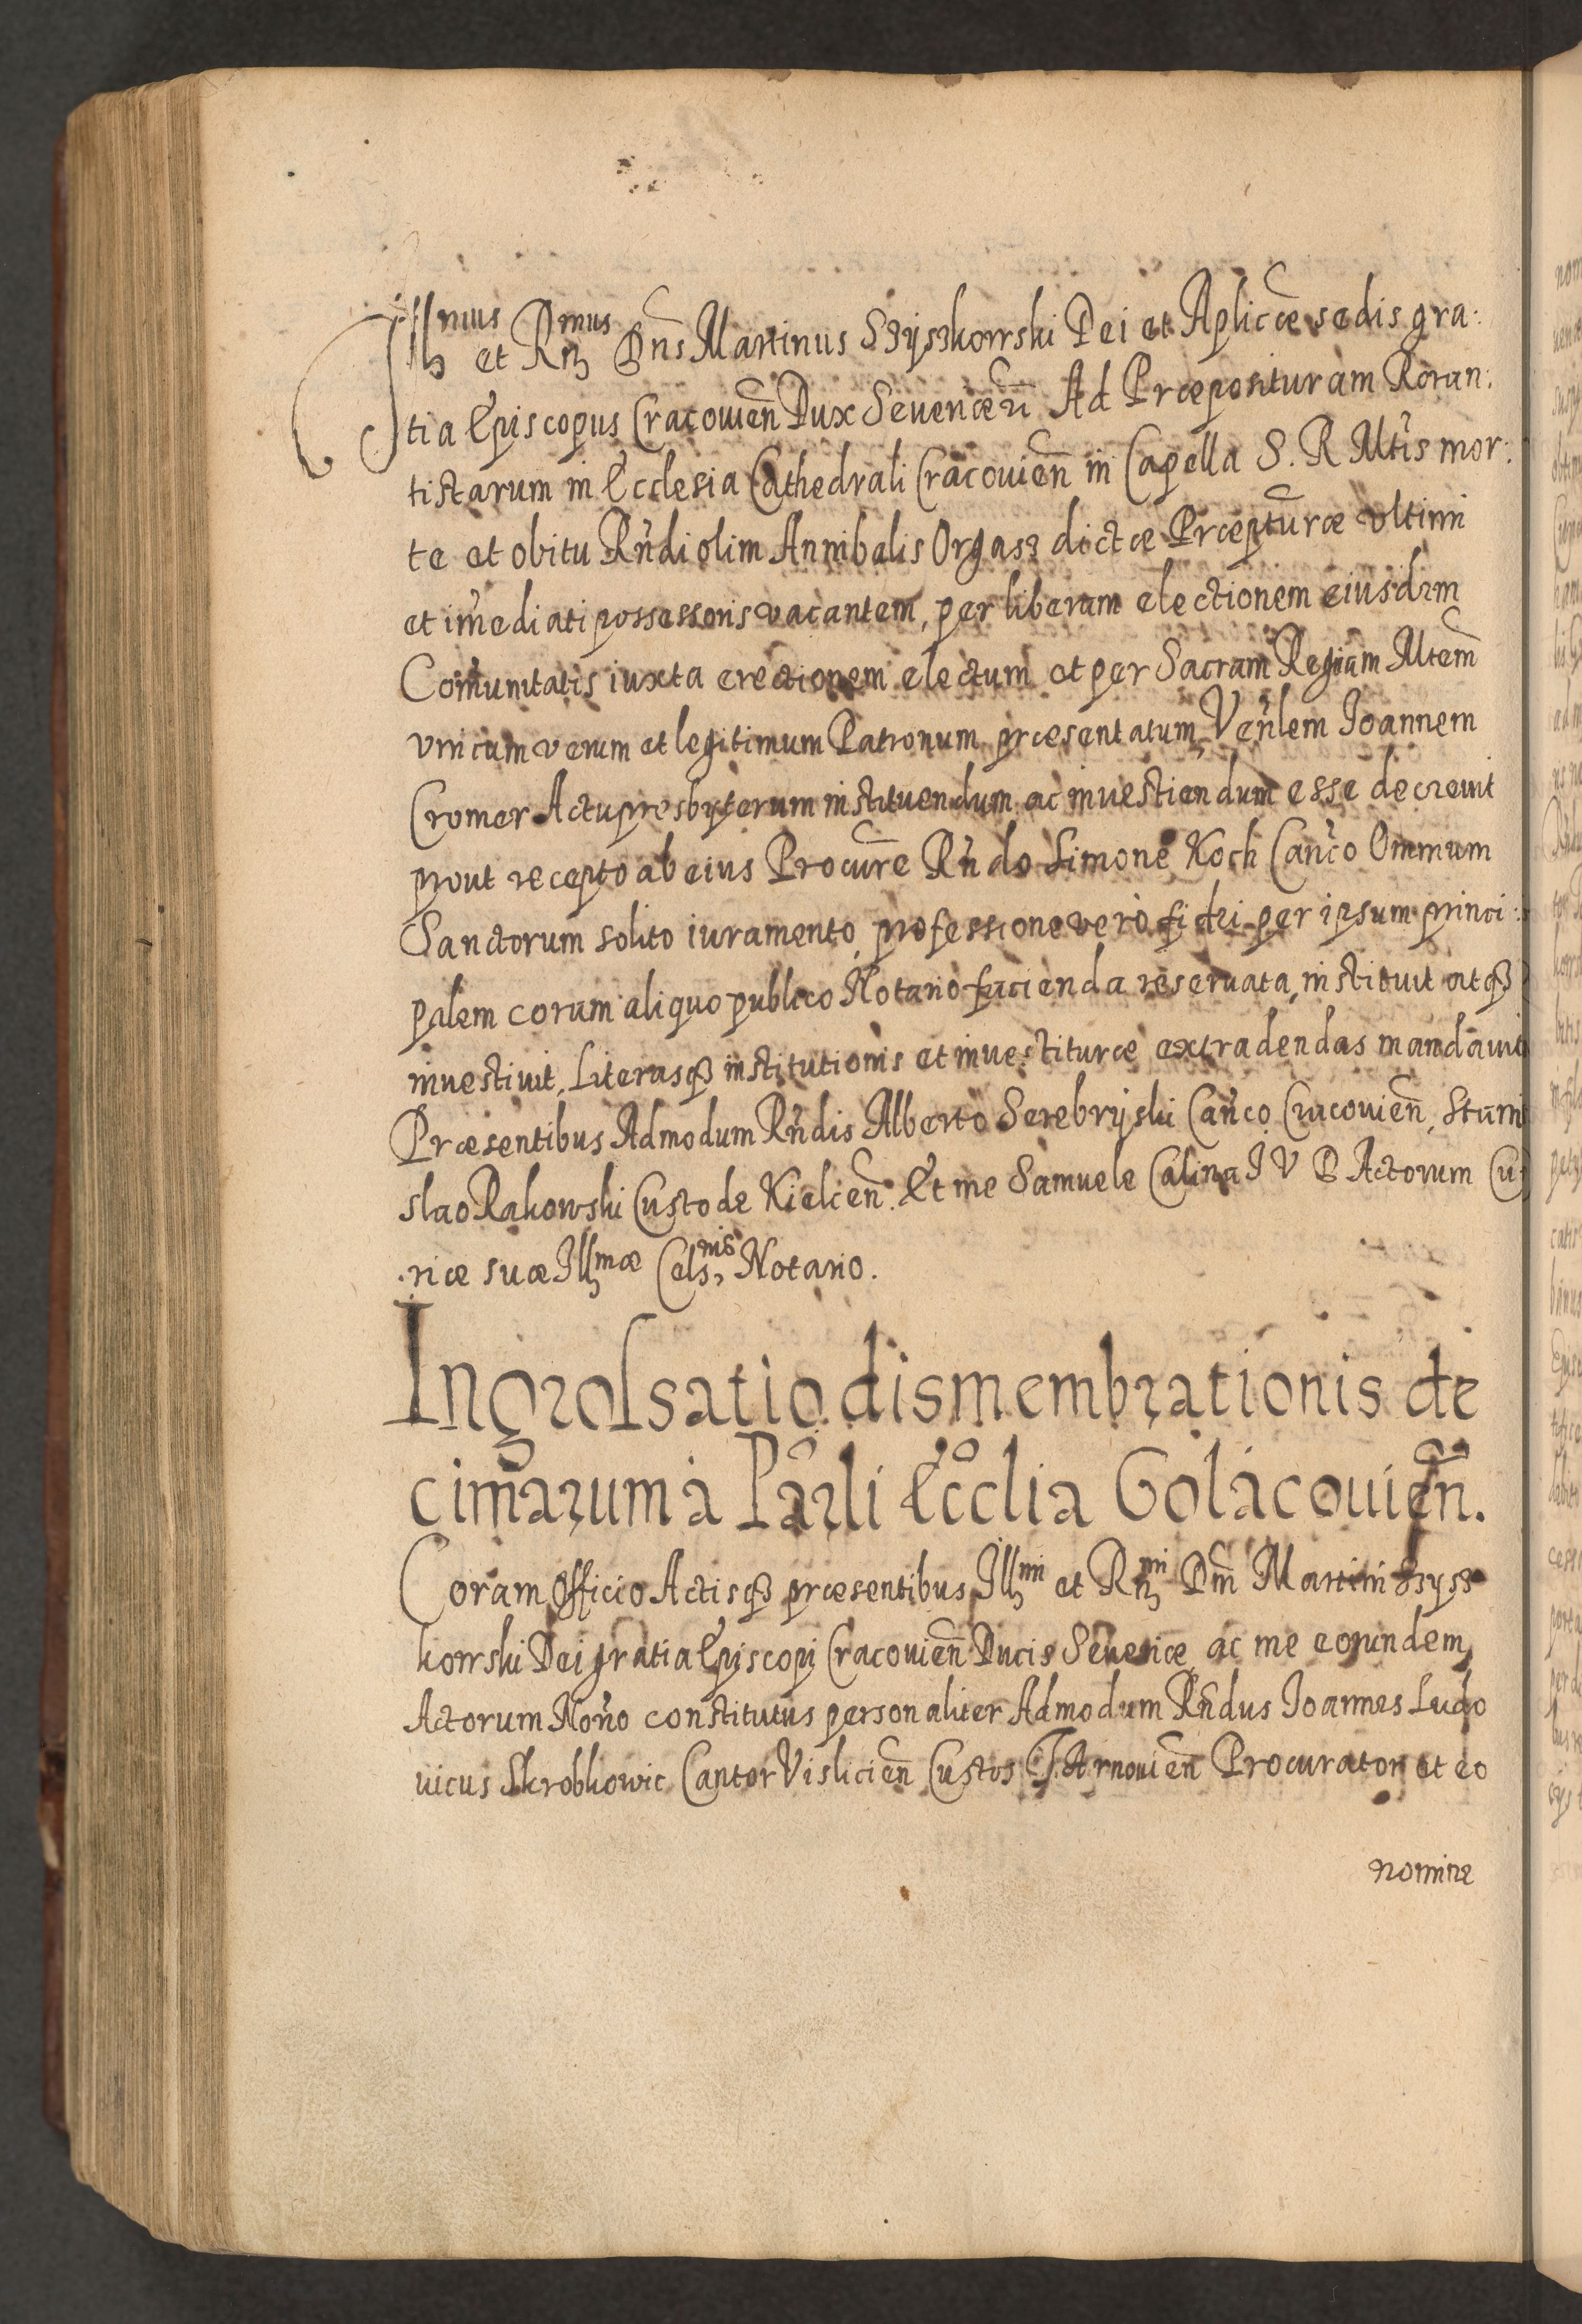 Illmus et Rmus Dns Martinus Szyszkowski Dei et Aplicæ sedis gra:
tia Episcopus Cracouien̄ Dux Seueriæn̄ Ad Præposituram Roran:
tistarum in Ecclesia Cathedrali Cracouien̄ in Capella S. R Mtis mor:
te et obitu Rn̄di olim Annibalis Orgasz dictæ Præpturæ vltimi
et im̄ediati possessoris vacantem, per liberam electionem eiusdem
Com̄unitatis iuxta erectionem electum et per Sacram Regiam Mtem̄
vnicum verum et legitimum Patronum præsentatum, Ven̄lem Joannem
Cromer Actu presbyterum instituendum ac inuestiendum esse decreuit
prout recepto ab eius Procure Rn̄do Simone Koch Can̄co Omnium
Sanctorum solito iuramento, professione vero fidei per ipsum princi:
palem coram aliquo publico Notario facienda reseruata, instituit atqȝ
inuestiuit, Literasqȝ institutionis et inuestituræ extradendas mandauit
Præsentibus Admodum Rn̄dis Alberto Serebryski Can̄co Cracouien̄, Stani
slao Rakowski Custode Kielcen̄. Et me Samuele Calina J V D Actorum Cu
riæ suæ Illmæ Celsnis Notario.
Ingrossatio dismembrationis de
cimarum à Parli Ecclia Golaczouien̄.
Coram Officio Actisqȝ præsentibus Illmi et Rmi Dni Martini Szysz
kowski Dei gratia Episcopi Cracouien̄ Ducis Seueriæ ac me eorundem
Actorum Non̄o constitutus personaliter Admodum Rn̄dus Joannes Ludo
uicus Skrobkowic Cantor Vislicien̄ Custos Tarnouien̄ Procurator et eo
nomine